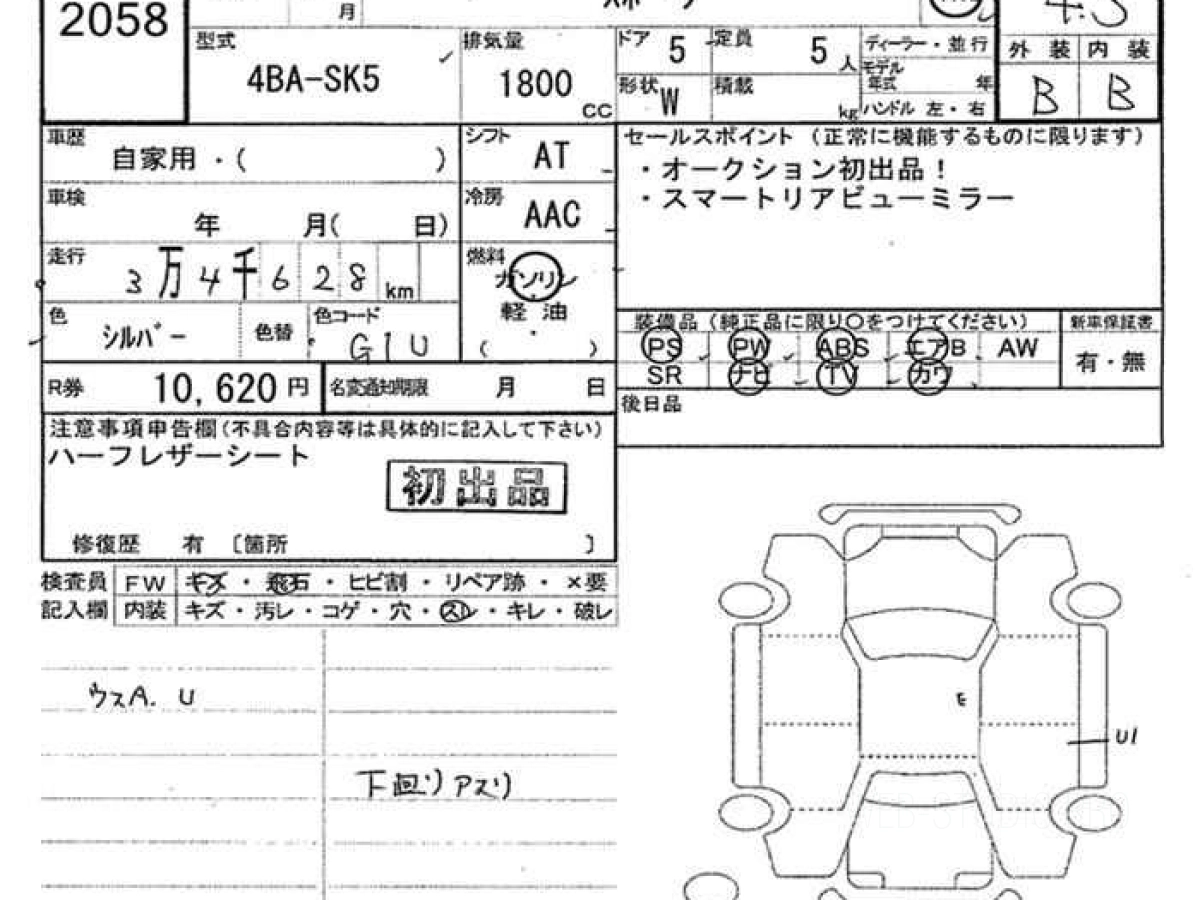 2058
月
スポーツ
4.5
型式 4BA-SK5
排気量 1800 CC
ドア 5
定員 5 人
形状 W
積載 kg
ディーラー・並行
モデル年式 年
ハンドル 左・右
外装 内装
B B
車歴 自家用・( )
シフト AT
車検 年 月( 日)
冷房 AAC
走行 3万4千628km
燃料 ガソリン
軽油
・
( )
色 シルバー
色替
色コード G1U
R券 10,620円
名変通知期限 月 日
セールスポイント (正常に機能するものに限ります)
・オークション初出品!
・スマートリアビューミラー
装備品(純正品に限り○をつけてください)
PS PW ABS エアB AW
SR ナビ TV カワ
新車保証書
有・無
後日品
注意事項申告欄(不具合内容等は具体的に記入して下さい)
ハーフレザーシート
初出品
修復歴 有 〔箇所 〕
検査員 FW キズ・飛石・ヒビ割・リペア跡・×要
記入欄 内装 キズ・汚レ・コゲ・穴・スレ・キレ・破レ
ウスA. U
下回りアズリ
E
U1